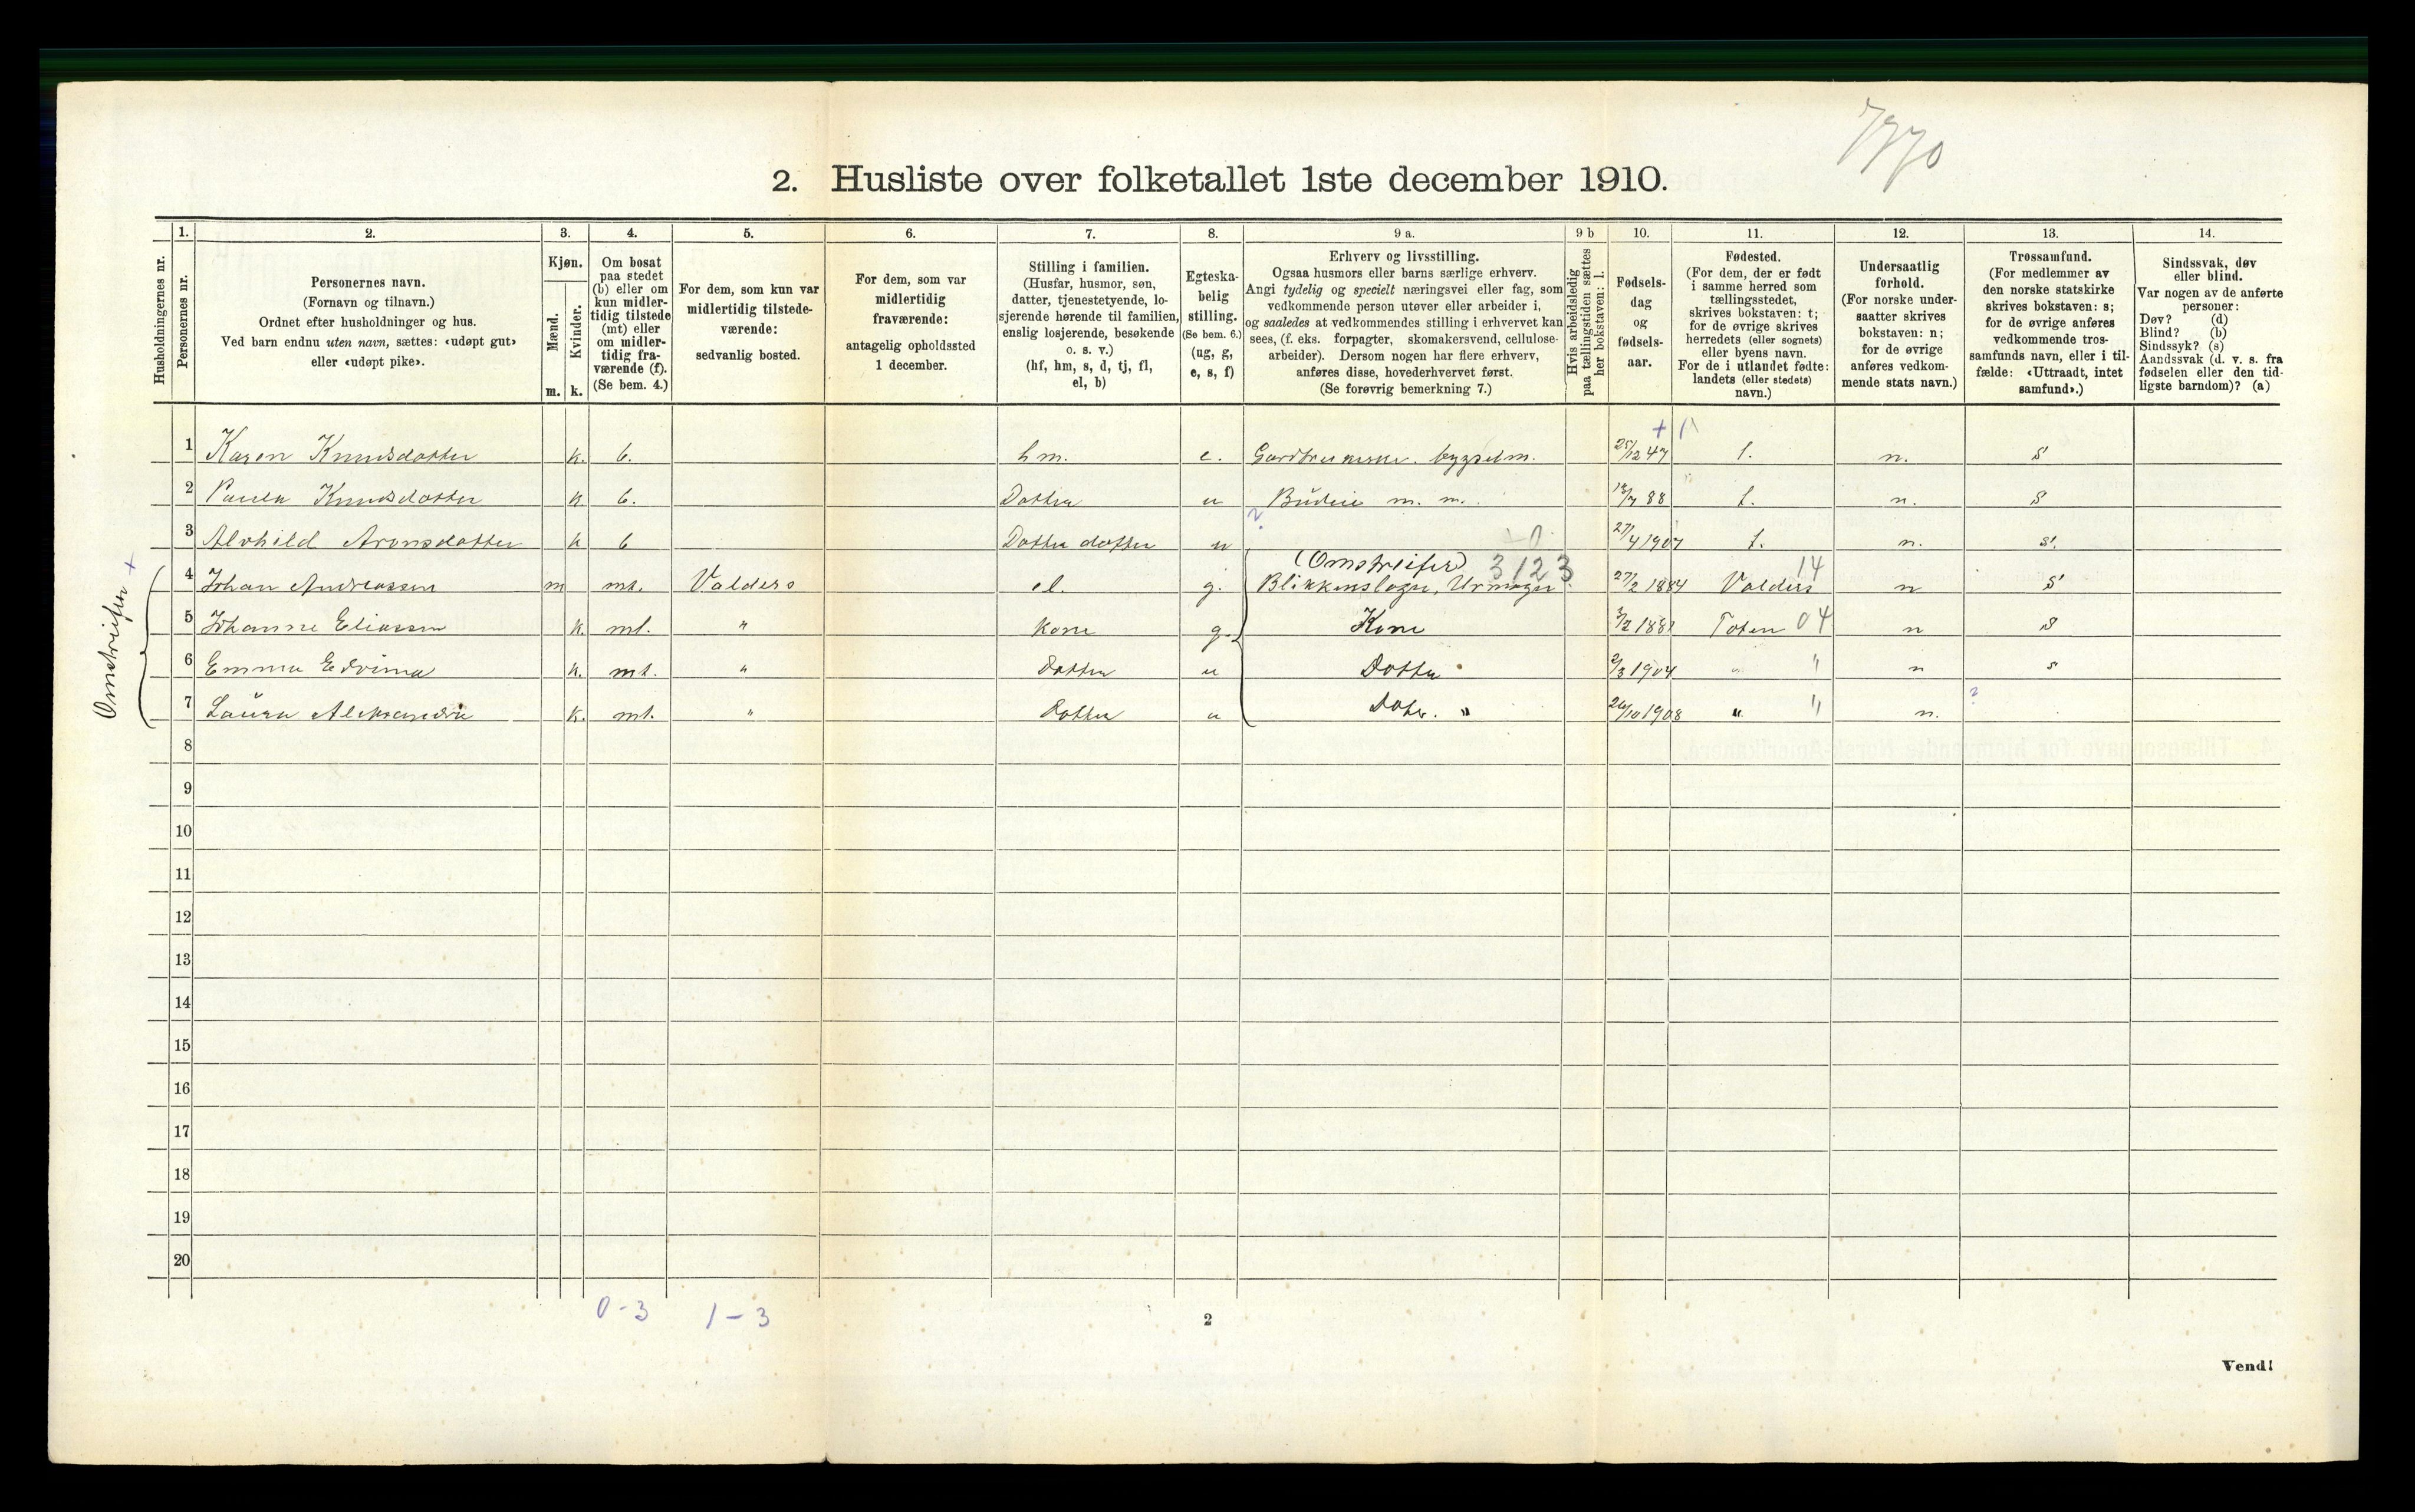 7770
2. Husliste over folketallet 1ste december 1910.
Husholdningernes nr.
1.
Personernes nr.
2.
Personernes navn.
(Fornavn og tilnavn.)
Ordnet efter husholdninger og hus.
Ved barn endnu uten navn, sættes: «udøpt gut»
eller «udøpt pike».
3.
Kjøn.
Mænd.
Kvinder.
m. k.
4.
Om bosat
paa stedet
(b) eller om
kun midler-
tidig tilstede
(mt) eller
om midler-
tidig fra-
værende (f).
(Se bem. 4.)
5.
For dem, som kun var
midlertidig tilstede-
værende:
sedvanlig bosted.
6.
For dem, som var
midlertidig
fraværende:
antagelig opholdssted
1 december.
7.
Stilling i familien.
(Husfar, husmor, søn,
datter, tjenestetyende, lo-
sjerende hørende til familien,
enslig losjerende, besøkende
o. s. v.)
(hf, hm, s, d, tj, fl,
el, b)
8.
Egteska-
belig
stilling.
(Se bem. 6.)
(ug, g,
e, s, f)
9 a.
Erhverv og livsstilling.
Ogsaa husmors eller barns særlige erhverv.
Angi tydelig og specielt næringsvei eller fag, som
vedkommende person utøver eller arbeider i,
og saaledes at vedkommendes stilling i erhvervet kan
sees, (f. eks. forpagter, skomakersvend, cellulose-
arbeider). Dersom nogen har flere erhverv,
anføres disse, hovederhvervet først.
(Se forøvrig bemerkning 7.)
9 b
Hvis arbeidsledig
paa tællingstiden sættes
her bokstaven: l.
10.
Fødsels-
dag
og
fødsels-
aar.
11.
Fødested.
(For dem, der er født
i samme herred som
tællingsstedet,
skrives bokstaven: t;
for de øvrige skrives
herredets (eller sognets)
eller byens navn.
For de i utlandet fødte:
landets (eller stedets)
navn.)
12.
Undersaatlig
forhold.
(For norske under-
saatter skrives
bokstaven: n;
for de øvrige
anføres vedkom-
mende stats navn.)
13.
Trossamfund.
(For medlemmer av
den norske statskirke
skrives bokstaven: s;
for de øvrige anføres
vedkommende tros-
samfunds navn, eller i til-
fælde: «Uttraadt, intet
samfund».)
14.
Sindssvak, døv
eller blind.
Var nogen av de anførte
personer:
Døv? (d)
Blind? (b)
Sindssyk? (s)
Aandssvak (d. v. s. fra
fødselen eller den tid-
ligste barndom)? (a)
1 Karen Knudsdatter k. b. hm. e. 25/12 47 t. n. s
2 Paula Knudsdotter k b. Dotter u Budeie m. m. 88 t. n. s
3 Alvhild Aronsdatter k b Datter dotter u 27/4 1907 t. n. s.
(Omstreifer) 3123 14
4 Johan Andreassen m mt. Valders el. g. Blikkenslager, Urmager 27/2 1884 Valders n s
5 Johanne Eliassen k. mt. " kone g. Kone 3/2 1881 Toten 04 n s
6 Emma Edvina k. mt. " Dotter u Dotter 2/3 1904 " " n s
7 Laura Aleksandria k. mt. " Dotter u Doter. " 26/10 1908 " " n. ?
Omstreifer +
8
9
10
11
12
13
14
15
16
17
18
19
20
0-3 1-3
2
Vend!